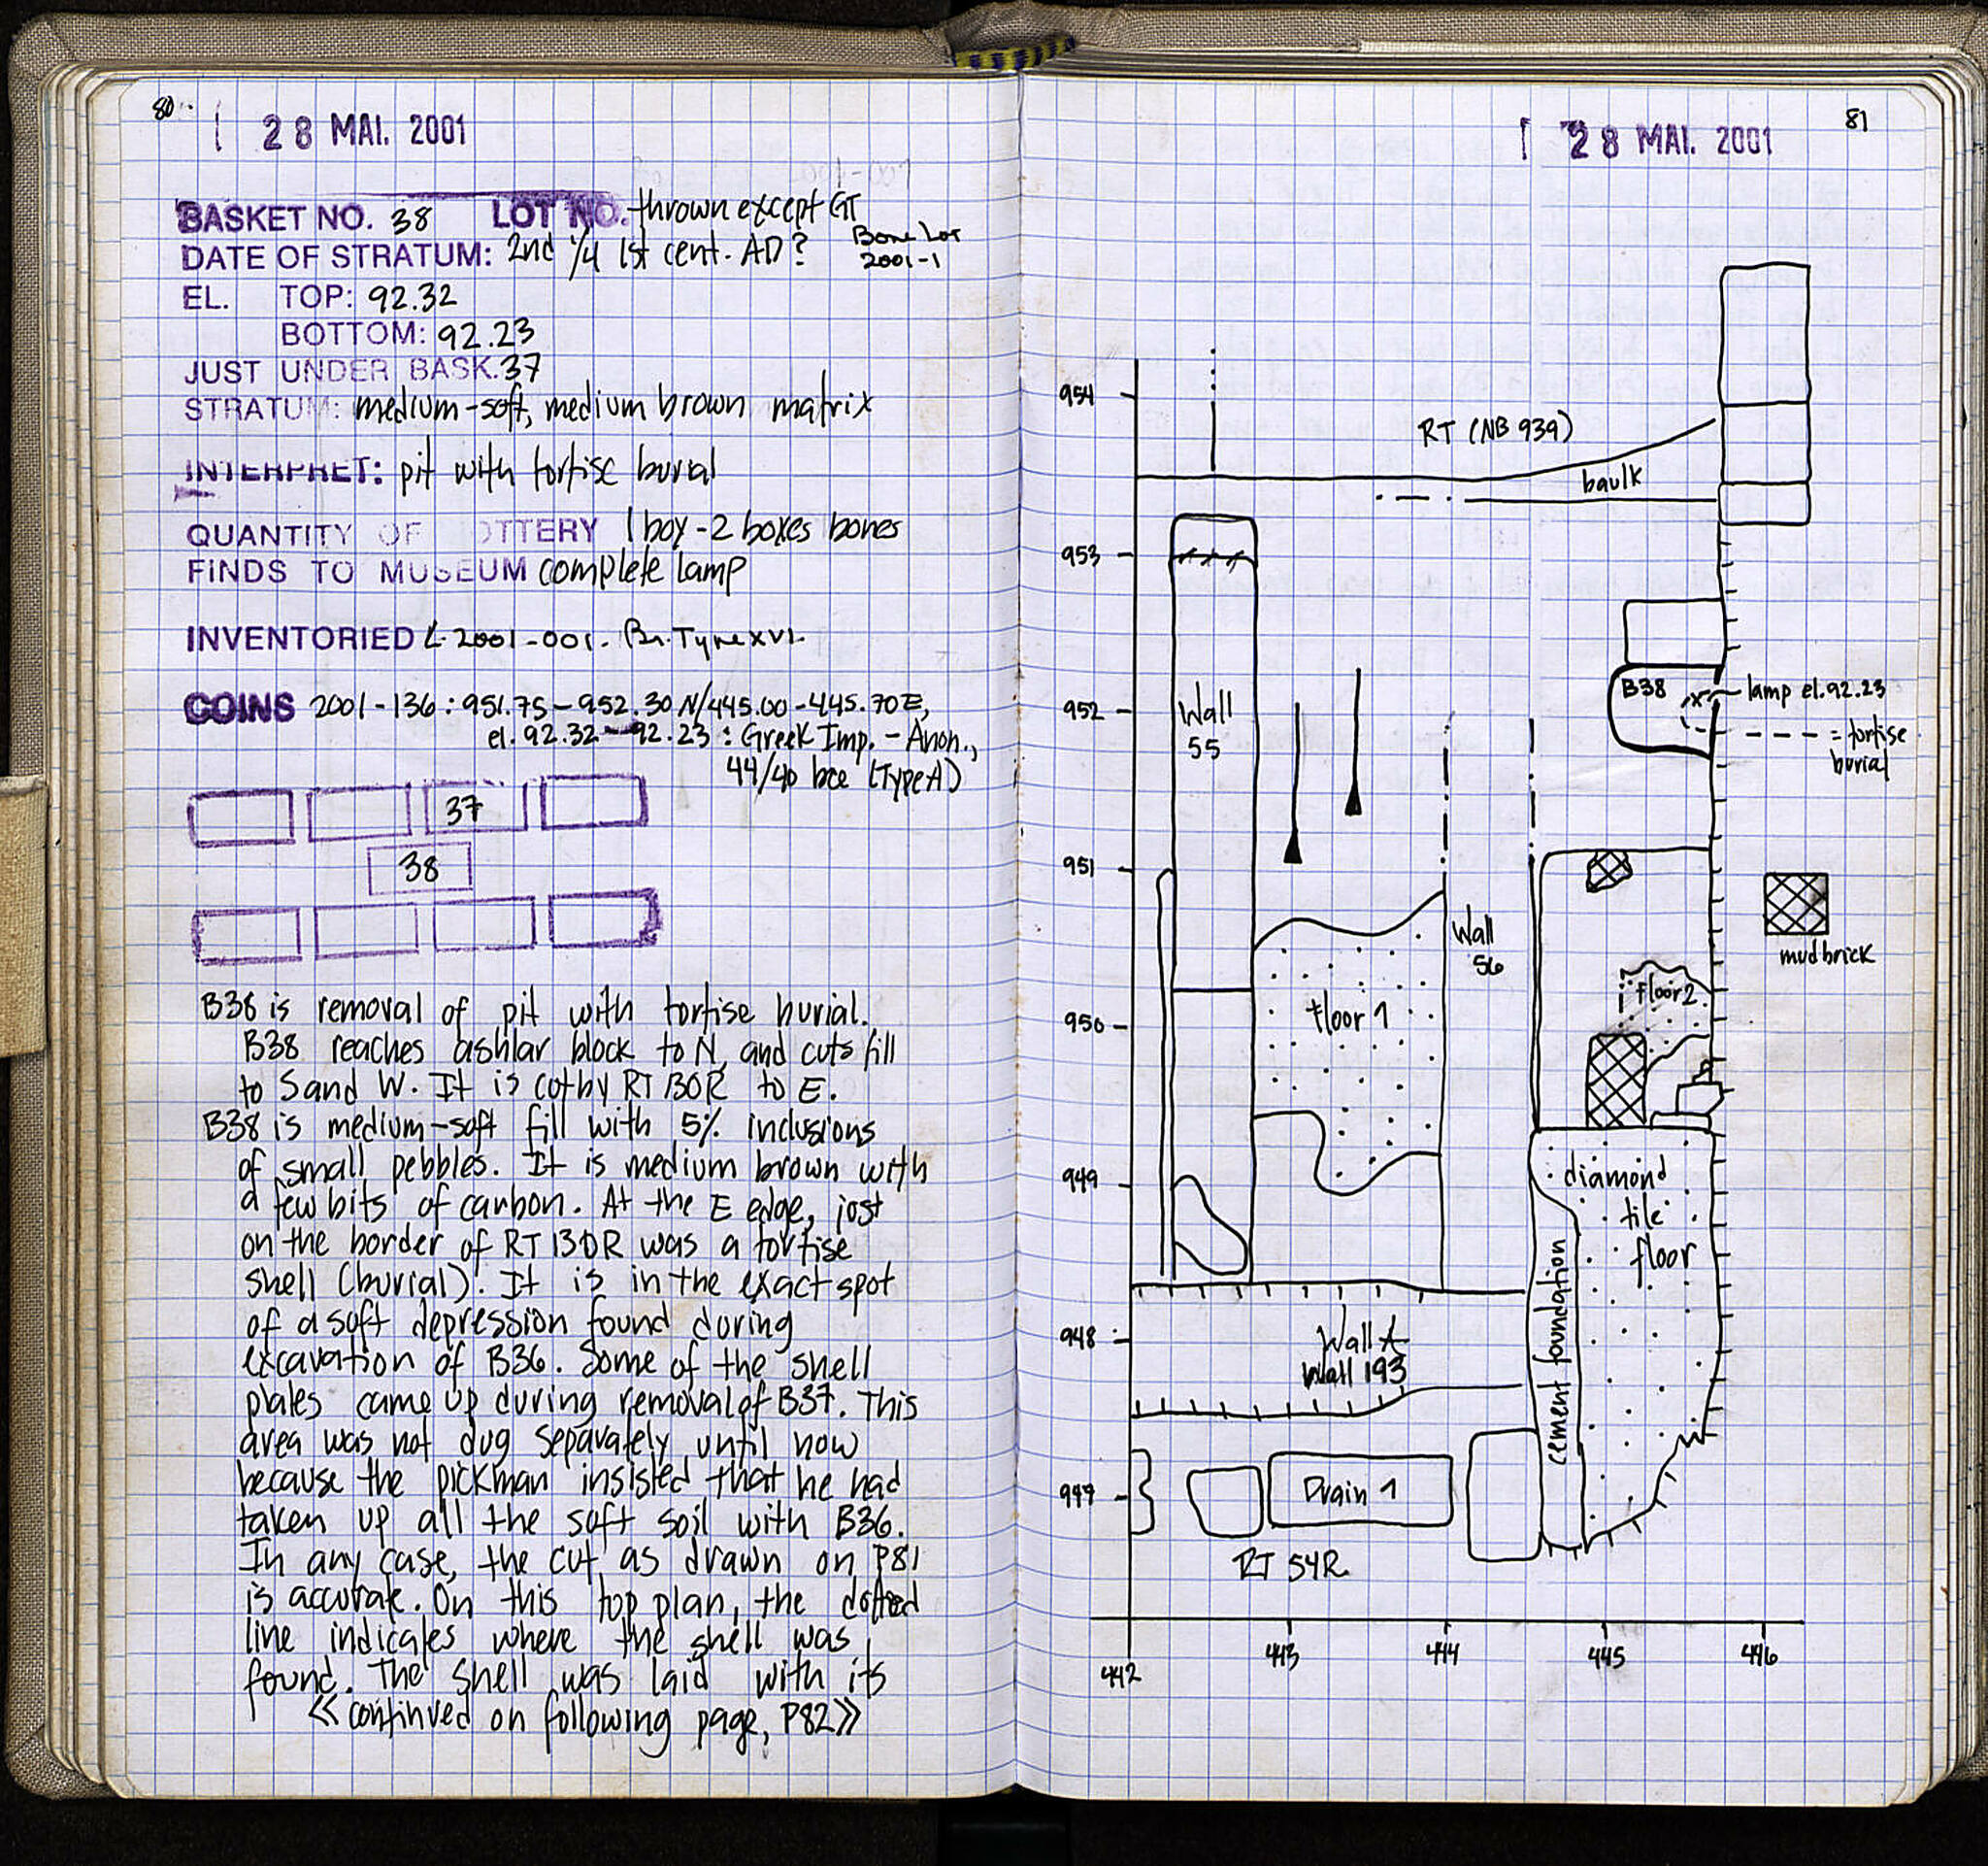 80
28 MAI. 2001
BASKET NO. 38 LOT NO. thrown except GT
Bone Lot
2001-1
DATE OF STRATUM: 2nd 1/4 1st cent. AD?
EL. TOP: 92.32
BOTTOM: 92.23
JUST UNDER BASK. 37
STRATUM: medium-soft, medium brown matrix
INTERPRET: pit with tortise burial
QUANTITY OF POTTERY 1 boy - 2 boxes bones
FINDS TO MUSEUM complete lamp
INVENTORIED L-2001-001. Br. Type XVI
COINS 2001-136: 951.75-952.30 N/445.00-445.70 E,
el. 92.32-92.23: Greek Imp. - Anon.,
44/40 bce (Type A)
37
38
B38 is removal of pit with tortise burial.
B38 reaches ashlar block to N, and cuts fill
to S and W. It is cut by RT 130R to E.
B38 is medium-soft fill with 5% inclusions
of small pebbles. It is medium brown with
a few bits of carbon. At the E edge, just
on the border of RT 130R was a tortise
shell (burial). It is in the exact spot
of a soft depression found during
excavation of B36. Some of the shell
plates came up during removal of B37. This
area was not dug separately until now
because the pickman insisted that he had
taken up all the soft soil with B36.
In any case, the cut as drawn on P81
is accurate. On this top plan, the dotted
line indicates where the shell was
found. The shell was laid with its
<<continued on following page, P82>>
81
28 MAI. 2001
954
RT (NB 939)
baulk
953
B38
lamp el. 92.23
952
Wall
55
= tortise
burial
951
Wall
56
mudbrick
floor 2
floor 1
950
949
diamond
tile
floor
cement foundation
948
Wall A
Wall 193
947
Drain 1
RT 54R
442
443
444
445
446